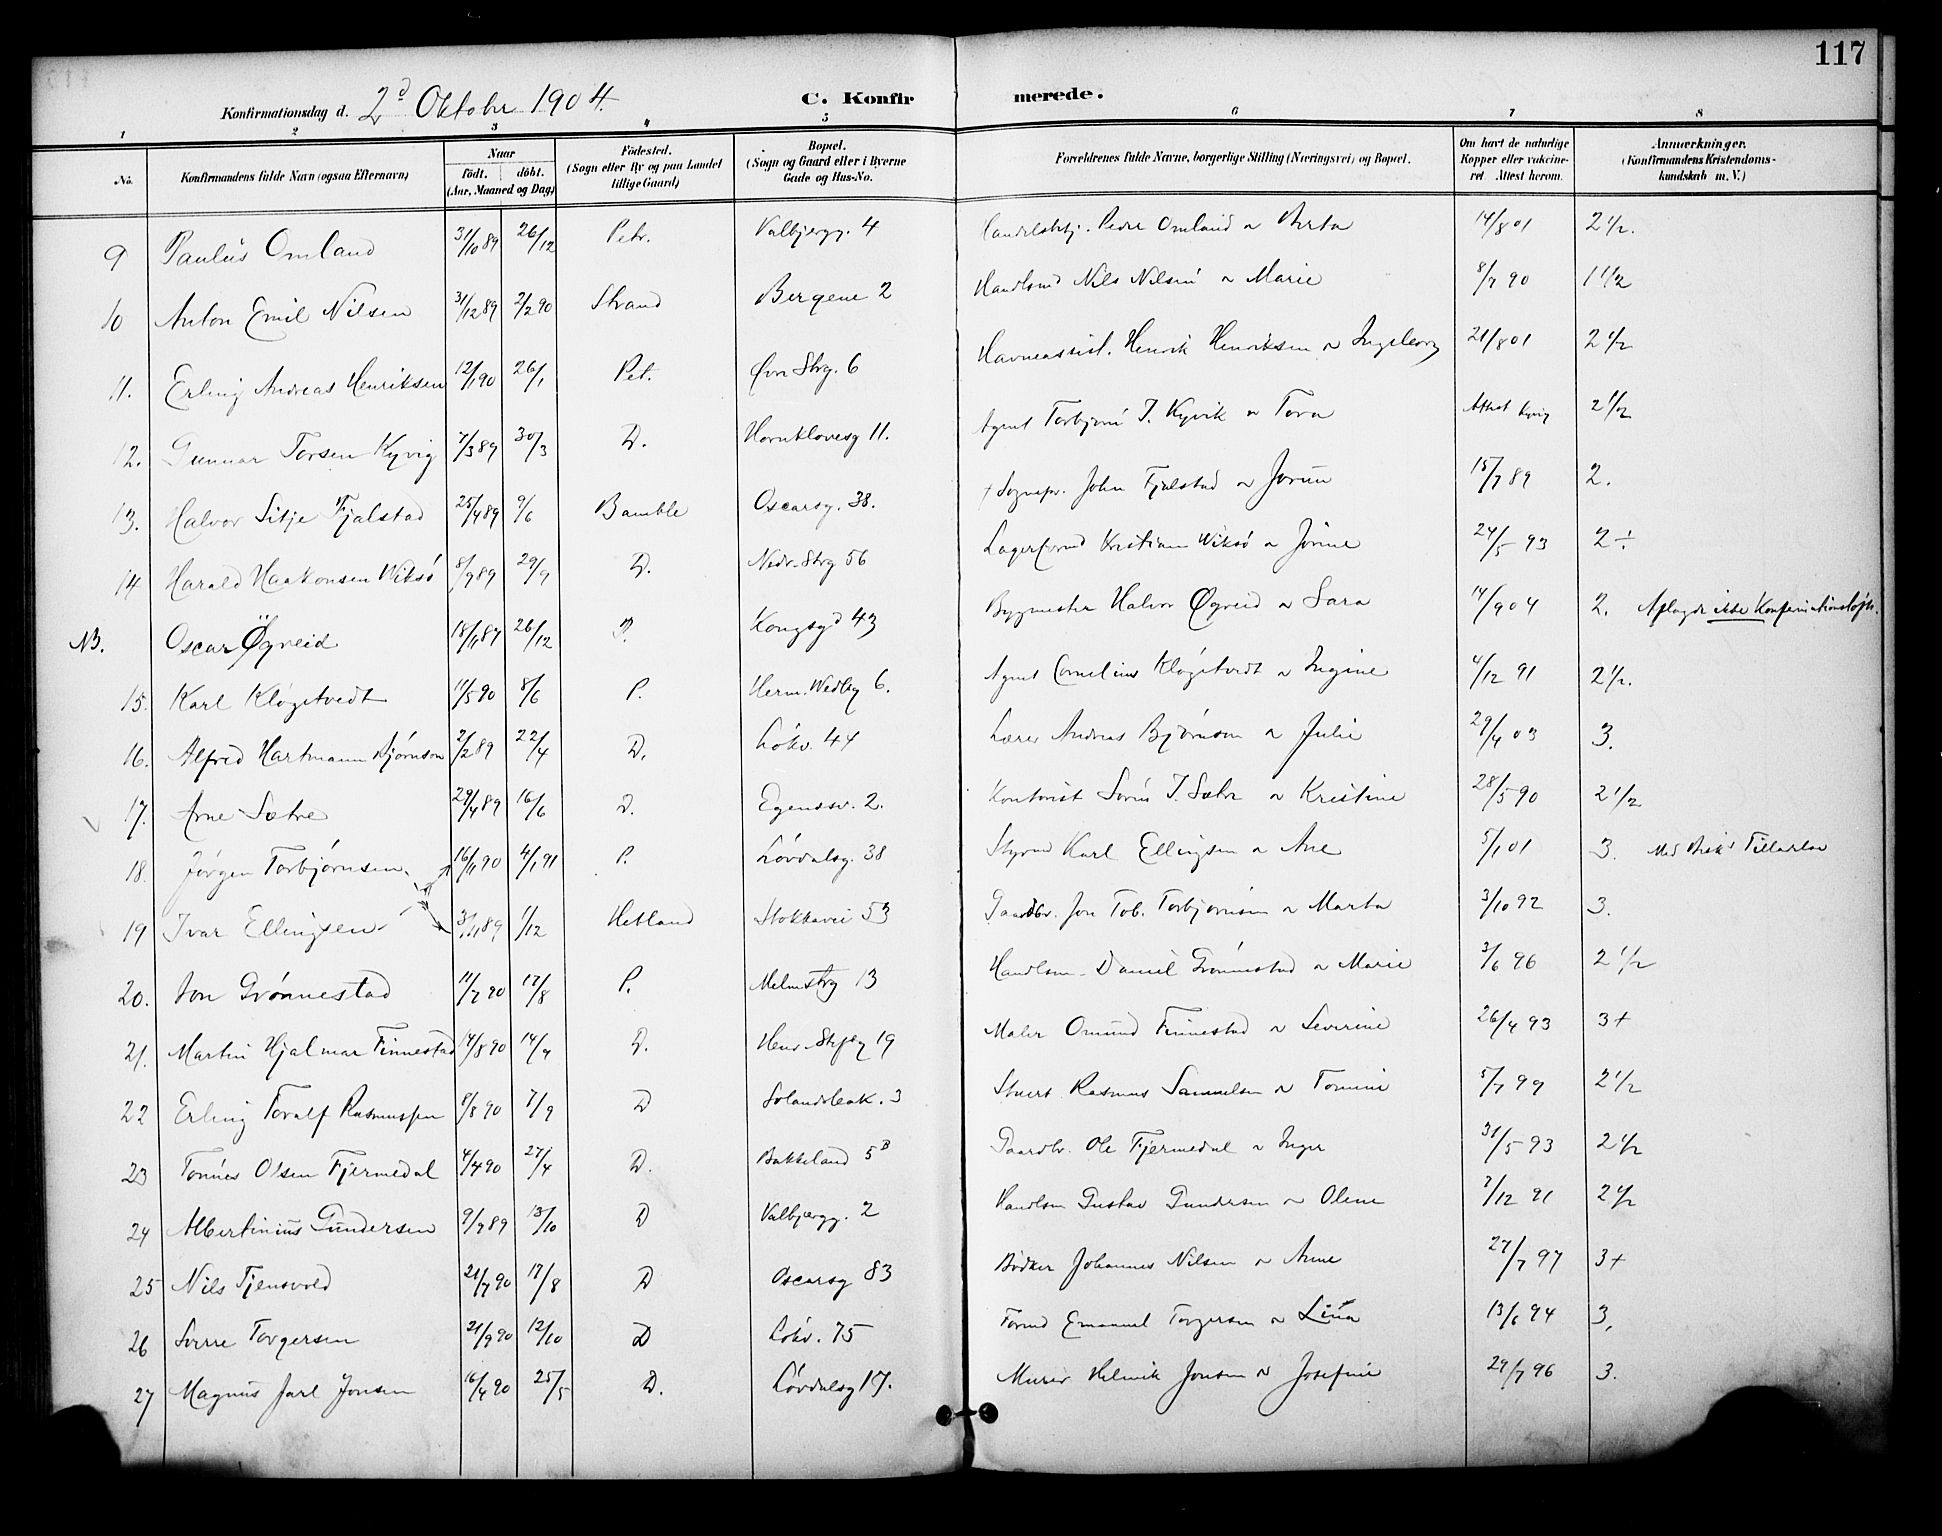 117
Konfirmationsdag d. 2d Oktobr 1904. C. Konfirmerede.
1 2 3 4 5 6 7 8
No. Konfirmandens fulde Navn (ogsaa Efternavn) Naar födt. döbt. (Aar, Maaned og Dag) Födested. (Sogn eller By og paa Landet tillige Gaard) Bopæl. (Sogn og Gaard eller i Byerne Gade og Hus-No. Forældrenes fulde Navne, borgerlige Stilling (Næringsvei) og Bopæl. Om havt de naturlige Kopper eller vakcineret. Attest herom. Anmærkninger. (Konfirmandens Kristendomskundskab m. V.)
9 Paulus Omland 31/10 89 26/12 Petr. Valbjergg. 4 Peder Omland & Berta 14/8 01 2 1/2.
10 Anton Emil Nilsen 31/12 89 2/2 90 Strand Bergene 2 Handlsmd Nils Nilsen & Marie 8/7 90 1 1/2
11. Erling Andreas Henriksen 12/1 90 26/1 Pet. Øvr Strg. 6 Havneassist. Henrik Henriksen & Ingeborg 21/8 01 2 1/2
12. Gunnar Torsen Kyvig 7/3 89 30/3 D. Hornklovesg 11. Agent Torbjørn T. Kyvik & Tora Attest 2 1/2
13. Halvor Sitje Fjalstad 25/4 89 9/6 Bamble Oscarsg. 38. + Sognepr. John Fjalstad & Jorun 15/7 89 2.
14 Harald Haakonsen Wiksö 8/9 89 29/9 D. Nedr. Strg 56 Lagerformd Kristian Wiksö & Jörine 24/5 93 2 ÷
NB. Oscar Øgreid 18/11 87 26/12 P. Kongsgd 43 Bygmester Halvor Øgreid & Sara 14/9 04 2. Aflagde ikke Konfirmationsløfte.
15. Karl Kløgetvedt 11/5 90 8/6 P. Herm. Wedbg 6. Agent Cornelius Kløgetvedt & Ingine 4/12 91 2 1/2.
16. Alfred Hartmann Bjørnson 2/2 89 22/4 D. Lökv. 44 Lærer Andreas Bjørnson & Julie 29/4 03 3.
17. Arne Sætre 29/4 89 16/6 D. Egenesv. 2. Kontorist Sören T. Sætre & Kristine 28/5 90 2 1/2
18. Jörgen Torbjörnsen. 16/11 90 4/1 91 P. Lövdalsg. 38 Styrmd Karl Ellingsen & Ane 5/1 01 3. Med Bisk's Tilladelse
19 Ivar Ellingsen 3/11 89 1/12 Hetland Stokkavei 53 Gaardbr. Jon Tob. Torbjörnsen & Marta 3/10 92 3.
20. Jon Grönnestad 11/7 90 17/8 P. Melmstrg 13 Handlsm. Daniel Grönnestad & Marie 3/6 96 2 1/2
21. Martin Hjalmar Finnestad 14/8 90 14/9 D. 19 Maler Omund Finnestad & Severine 26/4 93 3+
22 Erling Toralf Rasmussen 8/8 90 7/9 D Solandsbak. 3 Stuert Rasmus Samuelsen & Tomine 5/7 99 2 1/2
23 Tönnes Olsen Fjermedal 4/4 90 27/4 D. Bakkeland 5B Gaardbr. Ole Fjermedal & Inger 31/5 93 2 1/2
24 Albertinius Gundersen 9/9 89 13/10 D Valbjergg. 2 Handlsm Gustav Gundersen & Oline 7/12 91 2 1/2
25 Nils Tjensvold 21/7 90 17/8 D Oscarsg 83 Bödker Johannes Nilsen & Anne 27/7 97 3+
26 Sverre Torgersen 21/9 90 12/10 D Lökv. 75 Formd Emanuel Torgersen & Lina 13/6 94 3.
27 Magnus Jarl Jonsen 16/4 90 25/5 D. Lövdalsg 17. Murer Helmik Jonsen & Josefine 29/7 96 3.